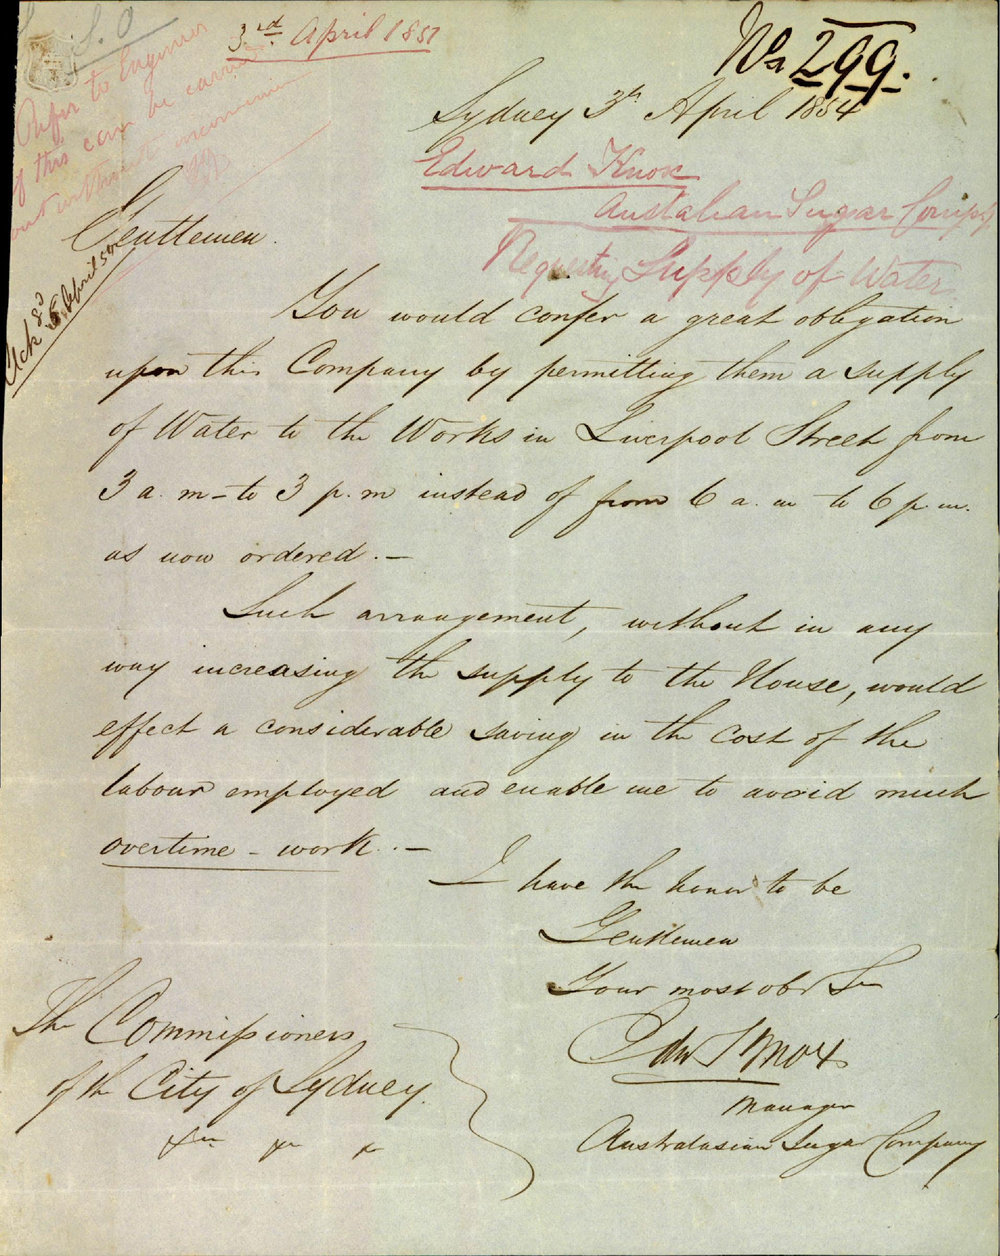 S. O
3rd April 1857
No 299.
Refer to Engineer
if this can be carried
out without inconvenience
Sydney 3th April 1854
Edward Knox
Australian Sugar Compy
Requesting Supply of Water
Gentlemen.
Ack 8d 5 April 54
You would confer a great obligation
upon this Company by permitting them a supply
of Water to the Works in Liverpool Street from
3 a. m - to 3 p. m instead of from 6 a. m to 6 p. m.
as now ordered. —
Such arrangement, without in any
way increasing the supply to the House, would
effect a considerable saving in the cost of the
labour employed and enable me to avoid much
overtime - work. —
I have the honor to be
Gentlemen
Your most obt Sr
Edw Knox
Manager
Australasian Sugar Company
The Commissioners
of the City of Sydney.